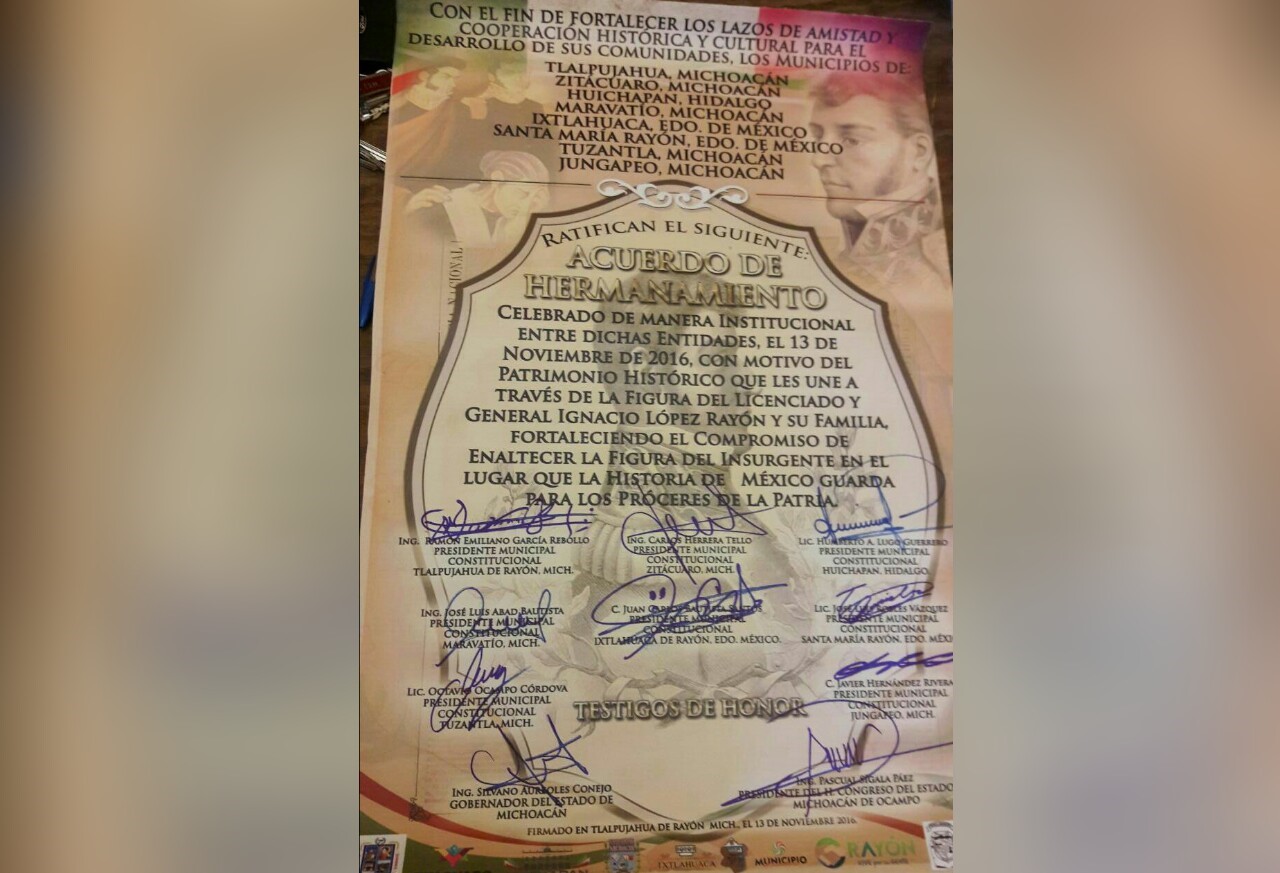 CON EL FIN DE FORTALECER LOS LAZOS DE AMISTAD Y
COOPERACIÓN HISTÓRICA Y CULTURAL PARA EL
DESARROLLO DE SUS COMUNIDADES, LOS MUNICIPIOS DE:
TLALPUJAHUA, MICHOACÁN
ZITÁCUARO, MICHOACÁN
HUICHAPAN, HIDALGO
MARAVATÍO, MICHOACÁN
IXTLAHUACA, EDO. DE MÉXICO
SANTA MARÍA RAYÓN, EDO. DE MÉXICO
TUZANTLA, MICHOACÁN
JUNGAPEO, MICHOACÁN
RATIFICAN EL SIGUIENTE:
ACUERDO DE
HERMANAMIENTO
CELEBRADO DE MANERA INSTITUCIONAL
ENTRE DICHAS ENTIDADES, EL 13 DE
NOVIEMBRE DE 2016, CON MOTIVO DEL
PATRIMONIO HISTÓRICO QUE LES UNE A
TRAVÉS DE LA FIGURA DEL LICENCIADO Y
GENERAL IGNACIO LÓPEZ RAYÓN Y SU FAMILIA,
FORTALECIENDO EL COMPROMISO DE
ENALTECER LA FIGURA DEL INSURGENTE EN EL
LUGAR QUE LA HISTORIA DE MÉXICO GUARDA
PARA LOS PRÓCERES DE LA PATRIA.
ING. RAMÓN EMILIANO GARCÍA REBOLLO
PRESIDENTE MUNICIPAL
CONSTITUCIONAL
TLALPUJAHUA DE RAYÓN, MICH.
ING. CARLOS HERRERA TELLO
PRESIDENTE MUNICIPAL
CONSTITUCIONAL
ZITÁCUARO, MICH.
LIC. HUMBERTO A. LUGO GUERRERO
PRESIDENTE MUNICIPAL
CONSTITUCIONAL
HUICHAPAN, HIDALGO.
ING. JOSÉ LUIS ABAD BAUTISTA
PRESIDENTE MUNICIPAL
CONSTITUCIONAL
MARAVATÍO, MICH.
C. JUAN CARLOS BAUTISTA SANTOS
PRESIDENTE MUNICIPAL
CONSTITUCIONAL
IXTLAHUACA DE RAYÓN, EDO. MÉXICO.
LIC. JOSÉ LUIS ROBLES VÁZQUEZ
PRESIDENTE MUNICIPAL
CONSTITUCIONAL
SANTA MARÍA RAYÓN, EDO. MÉXI
LIC. OCTAVIO OCAMPO CÓRDOVA
PRESIDENTE MUNICIPAL
CONSTITUCIONAL
TUZANTLA, MICH.
C. JAVIER HERNÁNDEZ RIVERA
PRESIDENTE MUNICIPAL
CONSTITUCIONAL
JUNGAPEO, MICH.
TESTIGOS DE HONOR
ING. SILVANO AUREOLES CONEJO
GOBERNADOR DEL ESTADO DE
MICHOACÁN
ING. PASCUAL SIGALA PÁEZ
PRESIDENTE DEL H. CONGRESO DEL ESTADO
MICHOACÁN DE OCAMPO
FIRMADO EN TLALPUJAHUA DE RAYÓN MICH., EL 13 DE NOVIEMBRE 2016.
IXTLAHUACA
MUNICIPIO
RAYÓN